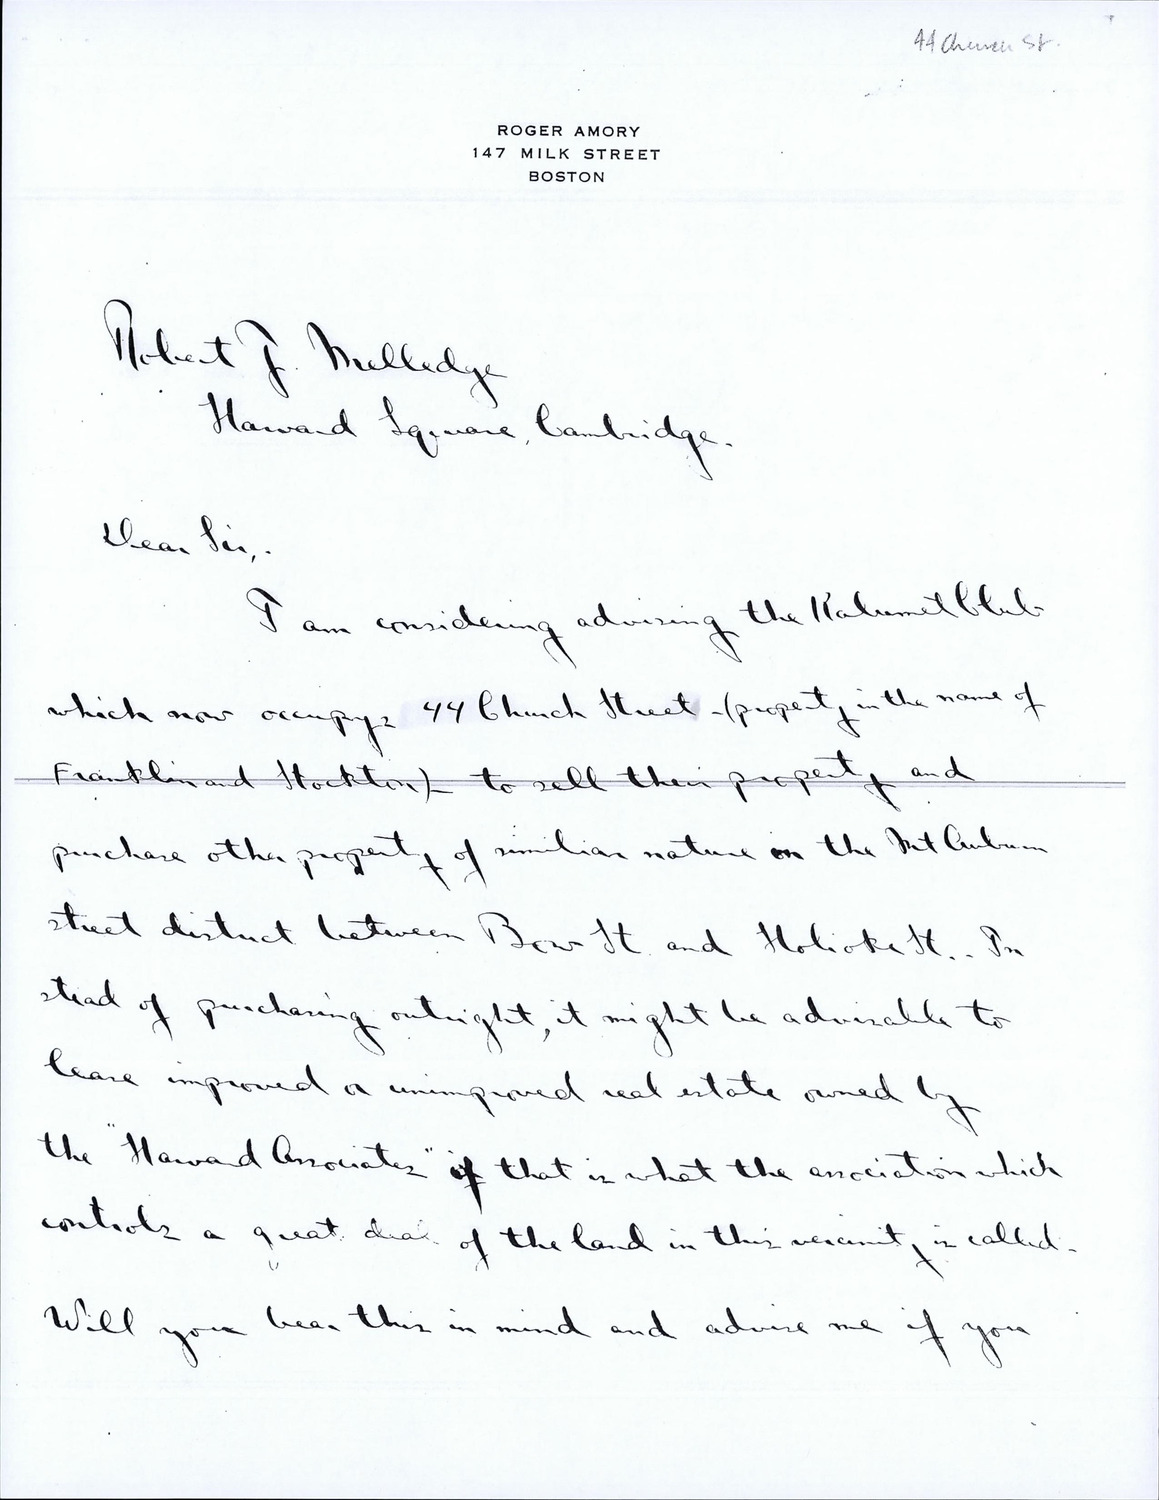 44 Church St.
ROGER AMORY
147 MILK STREET
BOSTON
Robert J. Melledge
Harvard Square, Cambridge.
Dear Sir,.
I am considering advising the Kalumet Club
which now occupys 44 Church Street - (property in the name of
Franklin and Stockton) - to sell their property and
purchase other property of similiar nature in the Mt Auburn
street district between Bow St. and Holioke St.. In
stead of purchasing outright, it might be advisable to
lease improved or unimproved real estate owned by
the "Harvard Associates" if that is what the association which
controls a great deal of the land in this vicinity is called.
Will you bear this in mind and advise me if you